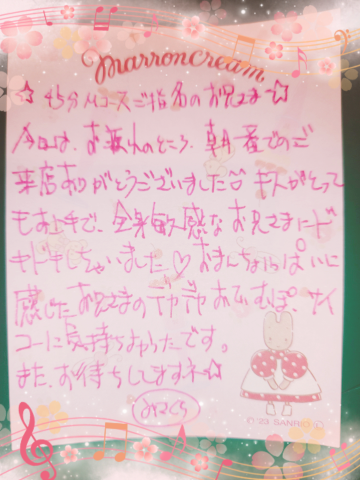 marroncream
☆45分Mコースご指名のお兄さま☆
今日は、お疲れのところ、朝一番でのご
来店ありがとうございました キスがとって
もお上手で、全身敏感なお兄さまにド
キドキしちゃいました♡ おまんちょいっぱいに
感じたお兄さまの おちむぽ、サイ
コーに気持ちよかったです。
また、お待ちしてますネ☆
さくら
©'23 SANRIO